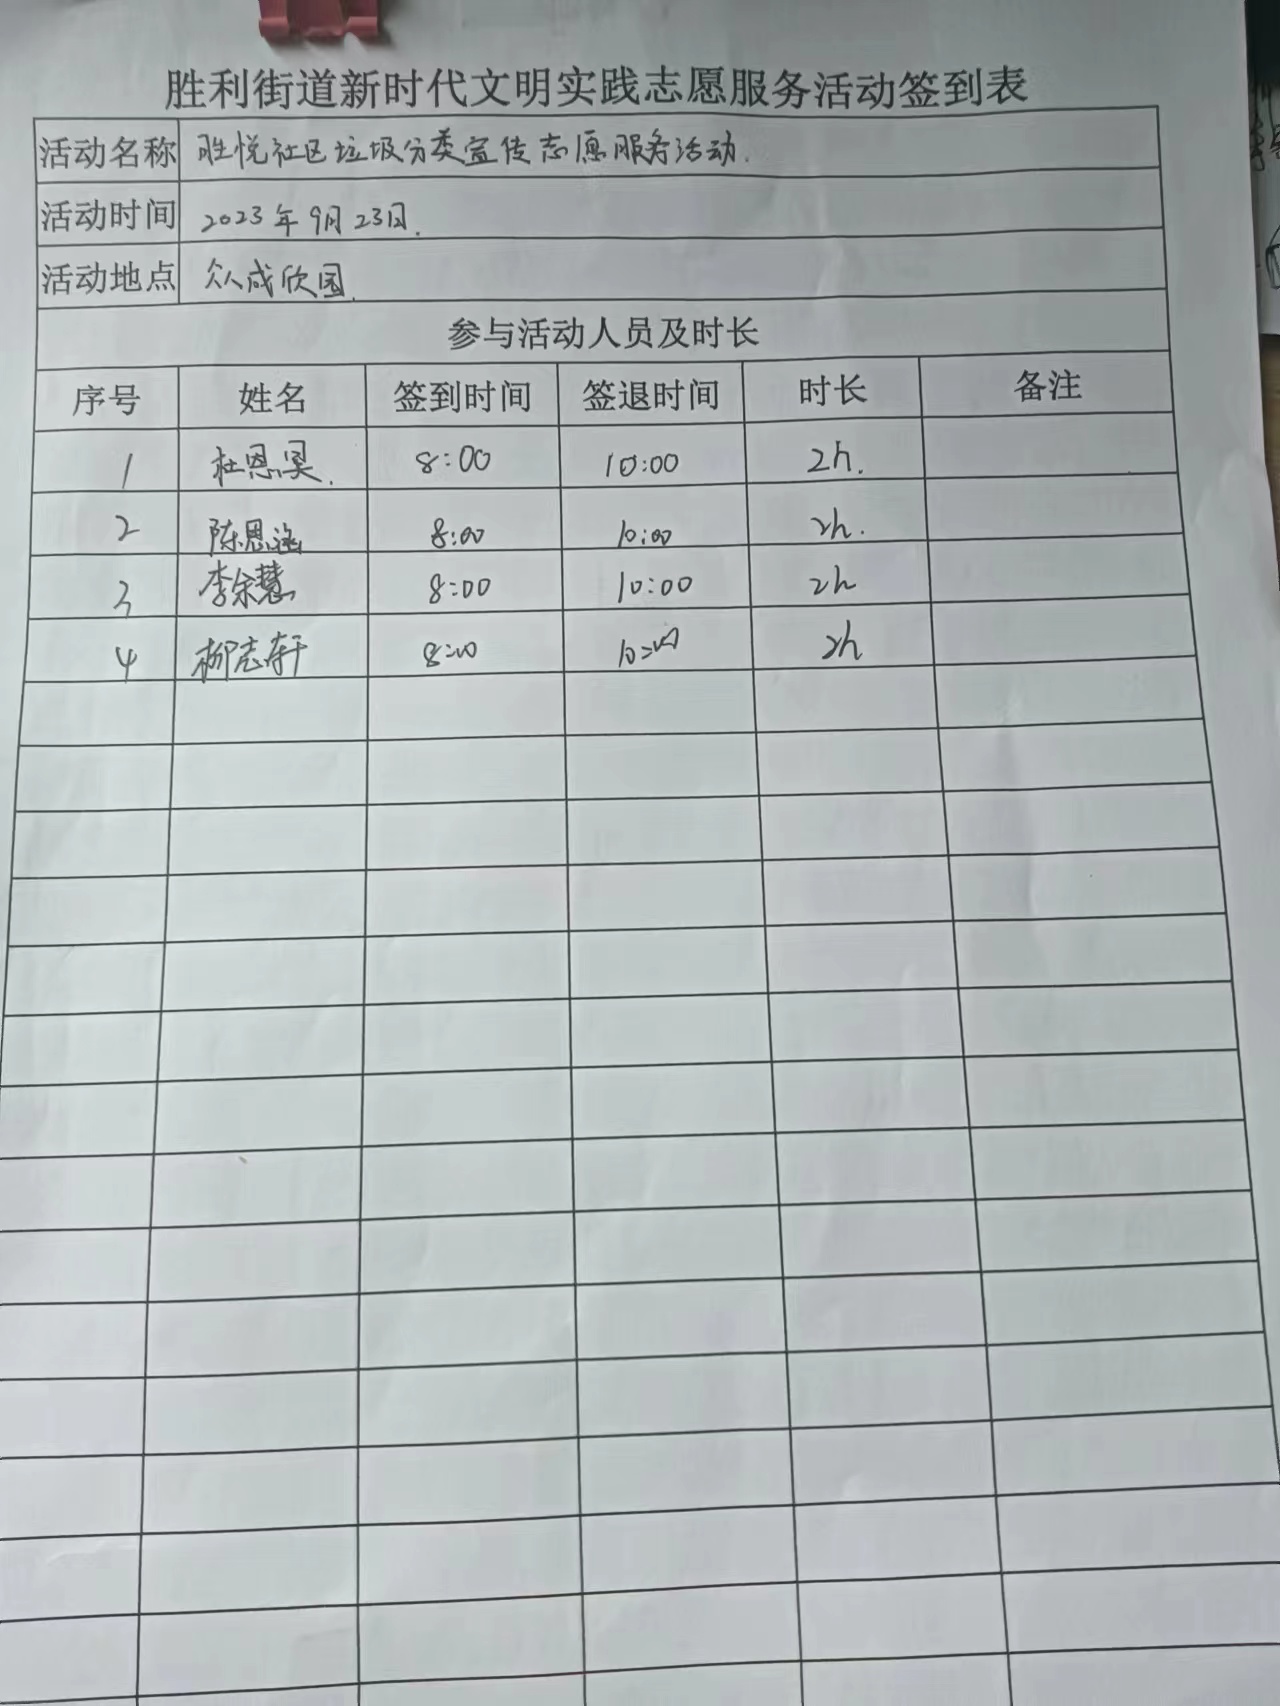 胜利街道新时代文明实践志愿服务活动签到表
活动名称 胜悦社区垃圾分类宣传志愿服务活动.
活动时间 2023年9月23日.
活动地点 众成欣园.
参与活动人员及时长
序号 姓名 签到时间 签退时间 时长 备注
1 杜恩昊. 8:00 10:00 2h.
2 陈恩涵 8:00 10:00 2h.
3 李余慧 8:00 10:00 2h
4 柳志轩 8:00 10:00 2h